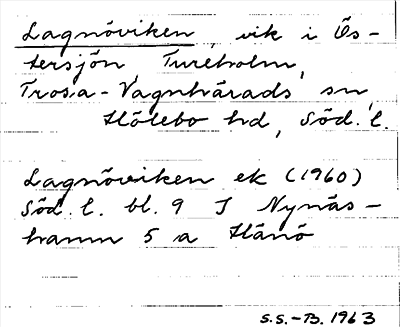 Lagnöviken, vik i Ös-
tersjön Tureholm,
Trosa-Vagnhärads sn,
Hölebo hd, Söd. l.
Lagnöviken ek (1960)
Söd. l. bl. 9 J Nynäs-
hamn 5 a Hånö
S.S.-B. 1963